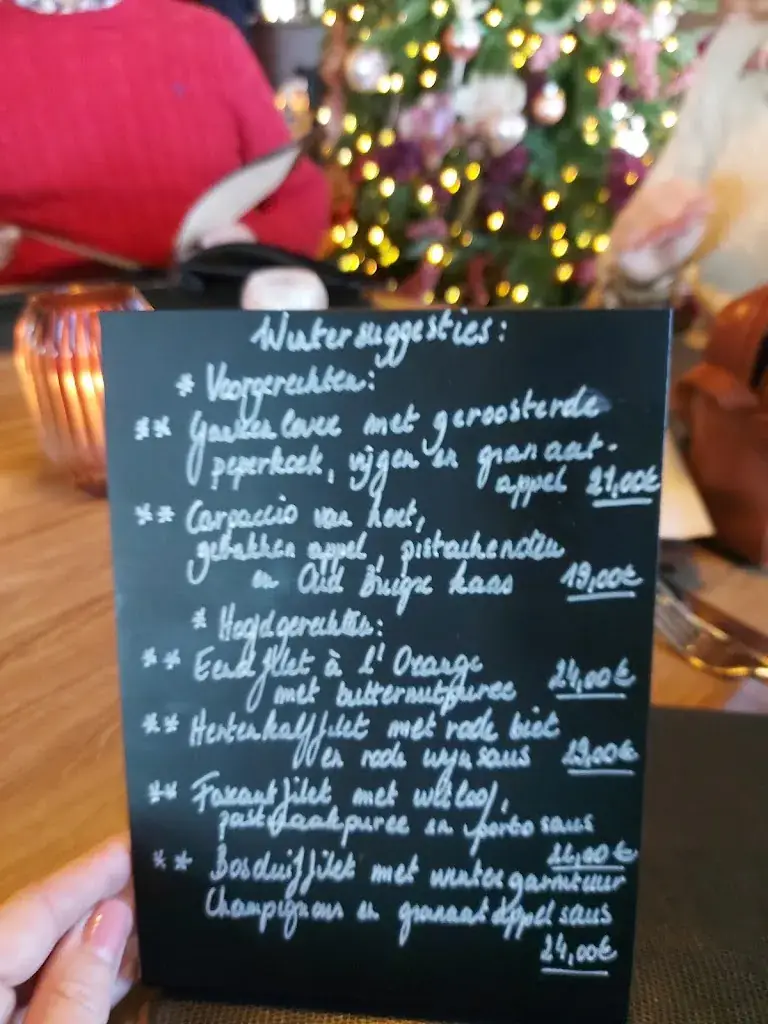 Wintersuggesties:
* Voorgerechten:
** Ganzenlever met geroosterde
peperkoek, vijgen en granaat-
appel 21,00€
** Carpaccio van hert,
gebakken appel, pistachenoten
en Oud Brugge kaas 19,00€
* Hoofdgerechten:
** Eendfilet à l'Orange
met butternutpuree 24,00€
** Hertenkalffilet met rode biet
en rode wijnsaus
** Fazantfilet met witloof,
pastinaakpuree en portosaus
** Bosduiffilet met wintergarnituur
Champignons en granaatappelsaus
24,00€